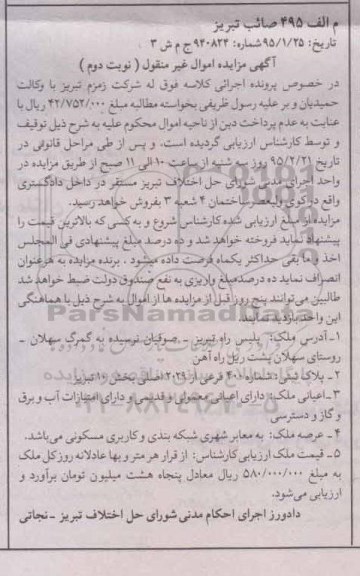 م الف ۴۹۵ صائب تبریز
تاریخ: ۹۵/۱/۲۵شماره: ۹۴۰۸۲۴ج م ش ۳
آگهی مزایده اموال غیر منقول ( نوبت دوم )
در خصوص پرونده اجرائی کلاسه فوق له شرکت زمزم تبریز با وکالت
حمیدیان و بر علیه رسول ظریفی بخواسته مطالبه مبلغ ۴۲/۷۵۲/۰۰۰ ریال با
عنایت به عدم پرداخت دین از ناحیه اموال محکوم علیه به شرح ذیل توقیف
و توسط کارشناس ارزیابی گردیده است. و پس از طی مراحل قانونی در
تاریخ ۹۵/۲/۲۱ روز سه شنبه از ساعت ۱۰ الی ۱۱ صبح از طریق مزایده در
واحد اجرای مدنی شورای حل اختلاف تبریز مستقر در داخل دادگستری
واقع در کوی ولیعصر ساختمان ۴ شعبه ۳ بفروش خواهد رسید.
مزایده از مبلغ ارزیابی شده کارشناس شروع و به کسی که بالاترین قیمت را
پیشنهاد نماید فروخته خواهد شد و ده درصد مبلغ پیشنهادی فی المجلس
اخذ و ما بقی حداکثر یکماه فرصت داده میشود . برنده مزایده به هر عنوان
انصراف نماید ده درصد مبلغ واریزی به نفع صندوق دولت ضبط خواهد شد
طالبین می توانند پنج روز قبل از مزایده ها از اموال به شرح ذیل با هماهنگی
این واحد بازدید نمایند.
۱- آدرس ملک: پلیس راه تبریز - صوفیان نرسیده به گمرگ سهلان -
روستای سهلان پشت ریل راه آهن
۲- پلاک ثبتی: شماره ۴۰۰ فرعی از ۲۰۲۹ اصلی بخش ۱۰ تبریز
۳- اعیانی ملک: دارای اعیانی معمولی و قدیمی و دارای امتیازات آب و برق
و گاز و دسترسی
۴- عرصه ملک: به معابر شهری شبکه بندی و کاربری مسکونی می باشد.
۵- قیمت ملک ارزیابی کارشناس: از قرار هر متر و بها عادلانه روز کل ملک
به مبلغ ۵۸۰/۰۰۰/۰۰۰ ریال معادل پنجاه هشت میلیون تومان برآورد و
ارزیابی می شود.
دادورز اجرای احکام مدنی شورای حل اختلاف تبریز - نجاتی
ParsNamadData